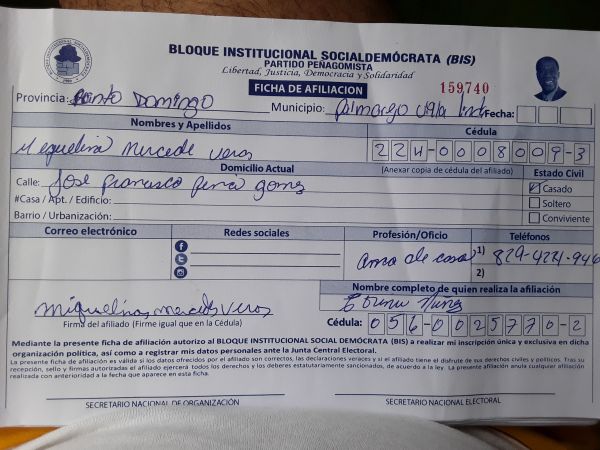 BLOQUE INSTITUCIONAL SOCIALDEMÓCRATA (BIS)
PARTIDO PEÑAGOMISTA
Libertad, Justicia, Democracia y Solidaridad
FICHA DE AFILIACION
159740
Provincia: Santo Domingo Municipio: Fecha:
Nombres y Apellidos Cédula
Mercede Veros 224-0008009-3
Domicilio Actual (Anexar copia de cédula del afiliado) Estado Civil
Calle: Jose Francisco Pena Gomes Casado
#Casa / Apt. / Edificio: Soltero
Barrio / Urbanización: Conviviente
Correo electrónico Redes sociales Profesión/Oficio Teléfonos
ama de casa 1) 829-424-946
2)
Nombre completo de quien realiza la afiliación
miguelina mercedes veros
Firma del afiliado (Firme igual que en la Cédula) Cédula: 056-0025770-2
Mediante la presente ficha de afiliación autorizo al BLOQUE INSTITUCIONAL SOCIAL DEMÓCRATA (BIS) a realizar mi inscripción única y exclusiva en dicha
organización política, así como a registrar mis datos personales ante la Junta Central Electoral.
La presente ficha de afiliación es válida si los datos ofrecidos por el afiliado son correctos, las declaraciones veraces y si el afiliado tiene el disfrute de sus derechos civiles y políticos. Tras su
recepción, sello y firmas autorizadas el afiliado ejercerá todos los derechos y los deberes estatutariamente sancionados, de acuerdo a la ley. La presente afiliación anula cualquier afiliación
realizada con anterioridad a la fecha que aparece en esta ficha.
SECRETARIO NACIONAL DE ORGANIZACIÓN SECRETARIO NACIONAL ELECTORAL